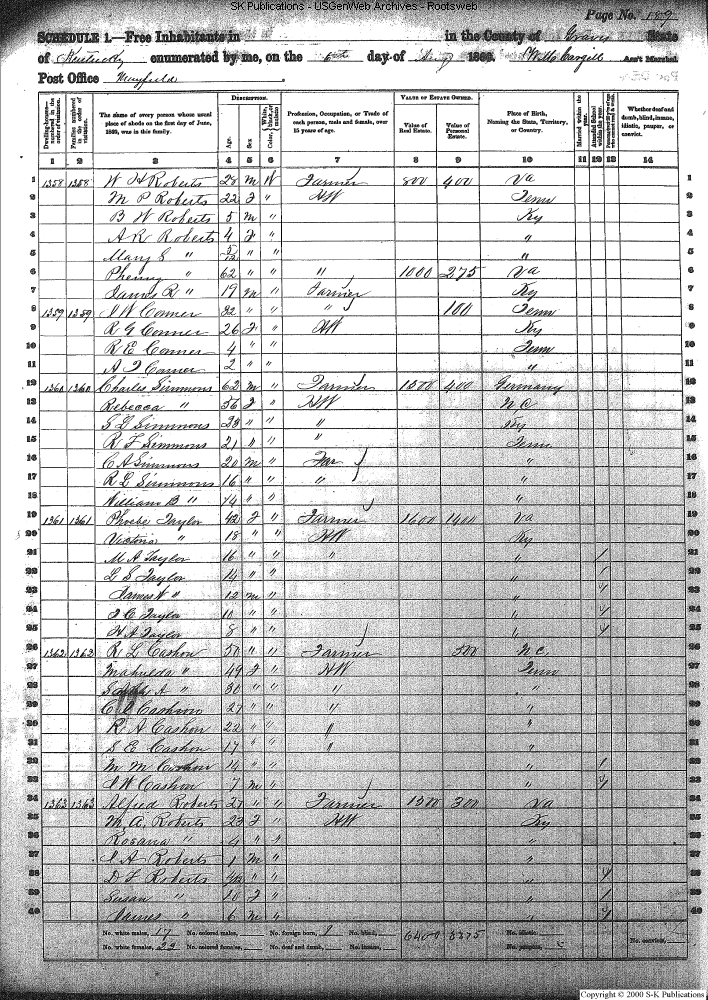 SK Publications - USGenWeb Archives - Rootsweb
Page No. 189
SCHEDULE 1.—Free Inhabitants in in the County of Graves State
of Kentucky enumerated by me, on the day of 1860. Ass't Marshal.
Post Office Mayfield
Dwelling-houses— numbered in the order of visitation.
Families numbered in the order of visitation.
The name of every person whose usual place of abode on the first day of June, 1860, was in this family.
DESCRIPTION.
Age.
Sex.
Color, White, black, or mulatto
Profession, Occupation, or Trade of each person, male and female, over 15 years of age.
VALUE OF ESTATE OWNED.
Value of Real Estate.
Value of Personal Estate.
Place of Birth, Naming the State, Territory, or Country.
Married within the year.
Attended School within the year.
Whether deaf and dumb, blind, insane, idiotic, pauper, or convict.
1 2 3 4 5 6 7 8 9 10 11 12 13 14
1 1358 1358 W H Roberts 28 M W Farmer 800 400 Va 1
2 M P Roberts 22 F " HW Tenn 2
3 B W Roberts 5 M " Ky 3
4 A R Roberts 4 F " " 4
5 Mary S " 5/12 " " " 5
6 Pheny " 62 " " " 1000 275 Va 6
7 James R " 19 M " Farmer Ky 7
8 1359 1359 J W Conner 32 " " " 100 Tenn 8
9 R G Conner 26 F " HW Ky 9
10 R E Conner 4 " " Tenn 10
11 A J Conner 2 " " " 11
12 1360 1360 Charles Simmons 62 M " Farmer 1500 400 Germany 12
13 Rebecca " 56 F " HW N C 13
14 S L Simmons 23 " " " Ky 14
15 R F Simmons 21 " " " Tenn 15
16 C A Simmons 20 M " Far " 16
17 R L Simmons 16 " " " " 17
18 William B " 14 " " " 18
19 1361 1361 Phoebe Taylor 42 F " Farmer 1600 1400 Va 19
20 Victoria " 18 " " HW Ky 20
21 M A Taylor 16 " " " " / 21
22 L S Taylor 14 " " " / 22
23 James W " 12 M " " / 23
24 J C Taylor 10 " " " / 24
25 H A Taylor 8 " " " / 25
26 1362 1362 R L Cashon 50 " " Farmer 500 N C 26
27 Mahulda " 49 F " HW Tenn 27
28 A " 30 " " " " 28
29 C Cashon 27 " " " " 29
30 R A Cashon 22 " " " " 30
31 S E Cashon 17 " " " 31
32 M M Cashon 14 " " " / 32
33 J W Cashon 7 M " " / 33
34 1363 1363 Alfred Roberts 27 " " Farmer 1500 300 Va 34
35 M. A. Roberts 23 F " HW Ky 35
36 Rosana " 4 " " " 36
37 J A Roberts 1 M " " 37
38 D F Roberts " " " / 38
39 Susan " 10 F " " / 39
40 James " 6 M " " / 40
No. white males, 17 No. colored males, No. foreign born, 1 No. blind, 6400 No. idiotic,
No. white females, 23 No. colored females, No. deaf and dumb, No. insane, No. paupers, No. convicts,
Copyright © 2000 S-K Publications